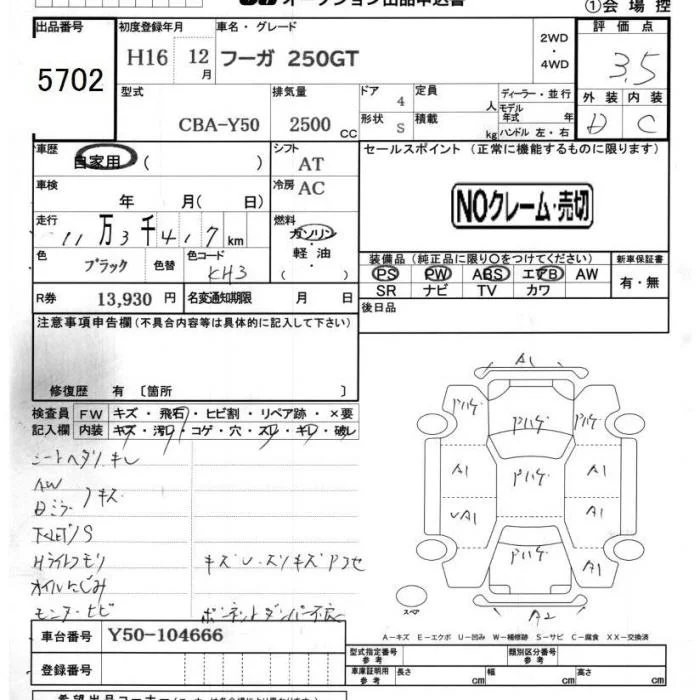 オークション出品申込書
①会場控
出品番号 初度登録年月 車名・グレード 評価点
5702 H16 12月 フーガ 250GT 2WD・4WD 3.5
型式 排気量 ドア 定員 ディーラー・並行 外装 内装
CBA-Y50 2500 CC 4 人 モデル年式 年 D C
形状 S 積載 kg ハンドル 左・右
車歴 自家用 ( ) シフト AT セールスポイント (正常に機能するものに限ります)
車検 年 月( 日) 冷房 AC
NOクレーム・売切
走行 11万3千417km 燃料 ガソリン・軽油・( )
色 ブラック 色替 色コード KH3
装備品 (純正品に限り○をつけてください) 新車保証書
PS PW ABS エアB AW 有・無
SR ナビ TV カワ
R券 13,930 円 名変通知期限 月 日 後日品
注意事項申告欄 (不具合内容等は具体的に記入して下さい)
修復歴 有 〔箇所 〕
検査員記入欄 FW キズ・飛石・ヒビ割・リペア跡・×要
内装 キズ・汚レ・コゲ・穴・スレ・キレ・破レ
シートヘタリ キレ
AW
ドミラー キズ
下廻りS
Hライトクモリ キズU・スリキズアワセ
オイルにじみ
モニターヒビ ボンネットダンパー不良
A1
Pハゲ Pハゲ Pハゲ
A1 Pハゲ A1
UA1 A1
Pハゲ A1
スペア A2
A-キズ E-エクボ U-凹み W-補修跡 S-サビ C-腐食 XX-交換済
車台番号 Y50-104666
登録番号
型式指定番号 参考 類別区分番号 参考
車庫証明用 参考 長さ cm 幅 cm 高さ cm